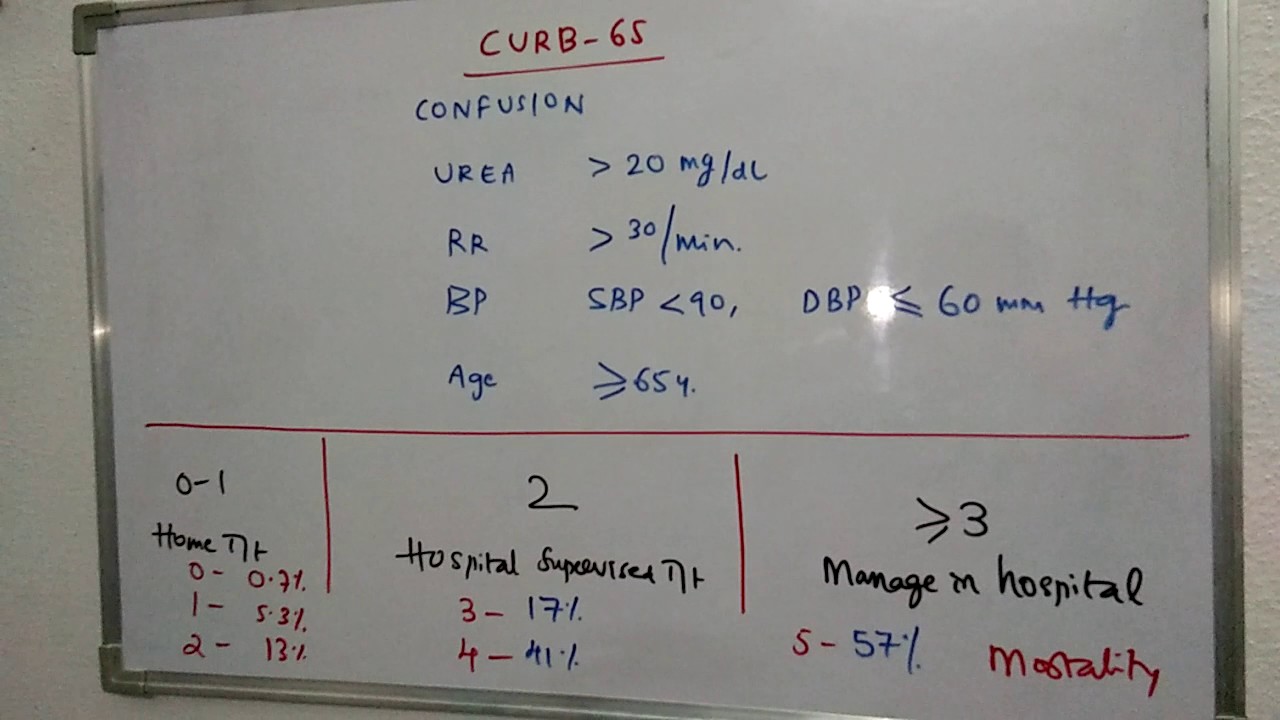 CURB-65
CONFUSION
UREA > 20 mg/dL
RR > 30/min.
BP SBP < 90, DBP ≤ 60 mm Hg
Age ≥ 65 y.
0-1
Home T/t
0 - 0.7%
1 - 5.3%
2 - 13%
2
Hospital Supervised T/t
3 - 17%
4 - 41%
≥3
Manage in hospital
5 - 57% Mortality